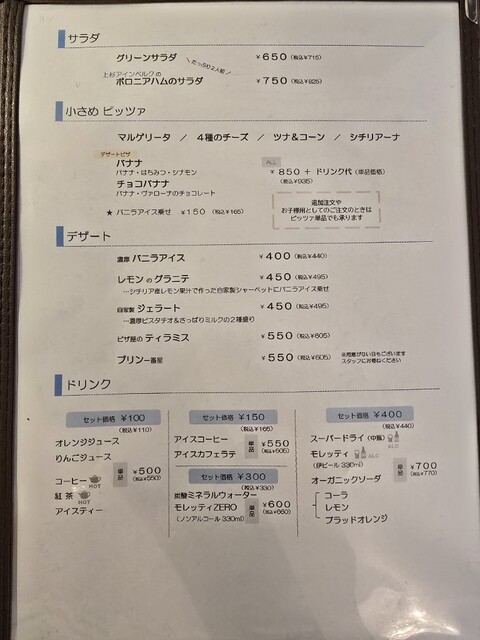 サラダ
グリーンサラダ ¥650(税込¥715)
たっぷり2人前
上杉アインベルクの
ボロニアハムのサラダ ¥750(税込¥825)
小さめ ピッツァ
マルゲリータ / 4種のチーズ / ツナ&コーン / シチリアーナ
デザートピザ
バナナ
バナナ・はちみつ・シナモン
チョコバナナ
バナナ・ヴァローナのチョコレート
ALL
¥850 + ドリンク代(単品価格)
(税込¥935)
★ バニラアイス乗せ ¥150(税込¥165)
追加注文や
お子様用としてのご注文のときは
ピッツァ単品でも承ります
デザート
濃厚 バニラアイス ¥400(税込¥440)
レモンのグラニテ ¥450(税込¥495)
…シチリア産レモン果汁で作った自家製シャーベットにバニラアイス乗せ
自家製 ジェラート ¥450(税込¥495)
…濃厚ピスタチオ&さっぱりミルクの2種盛り
ピザ屋の ティラミス ¥550(税込¥605)
プリン一番星 ¥550(税込¥605)
※用意がない日もございます
スタッフにお尋ねください
ドリンク
セット価格 ¥100
(税込¥110)
オレンジジュース
りんごジュース
コーヒー HOT
紅茶 HOT
アイスティー
単品 ¥500
(税込¥550)
セット価格 ¥150
(税込¥165)
アイスコーヒー
アイスカフェラテ
単品 ¥550
(税込¥605)
セット価格 ¥300
(税込¥330)
炭酸ミネラルウォーター
モレッティZERO
(ノンアルコール 330ml)
単品 ¥600
(税込¥660)
セット価格 ¥400
(税込¥440)
スーパードライ(中瓶) ALC
モレッティ ALC
(伊ビール 330ml)
オーガニックソーダ
コーラ
レモン
ブラッドオレンジ
単品 ¥700
(税込¥770)